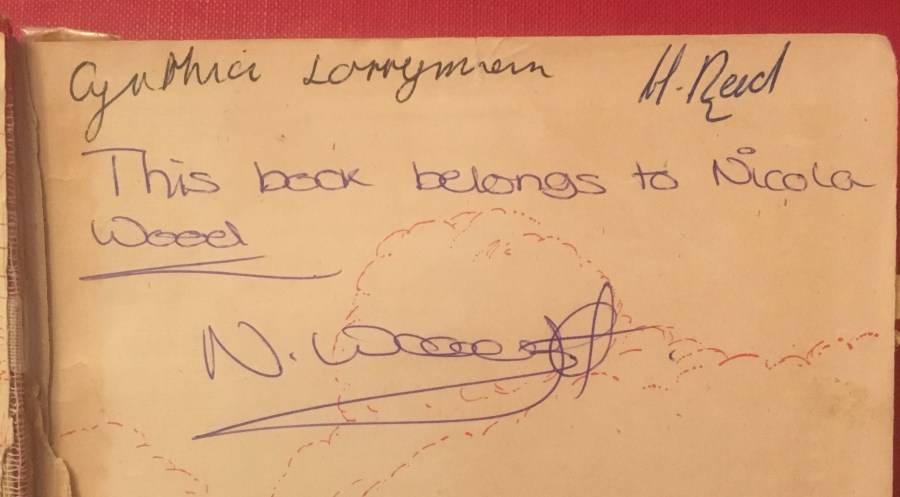 Cynthia Lorryman H. Reed
This book belongs to Nicola
Wood
N. Wood